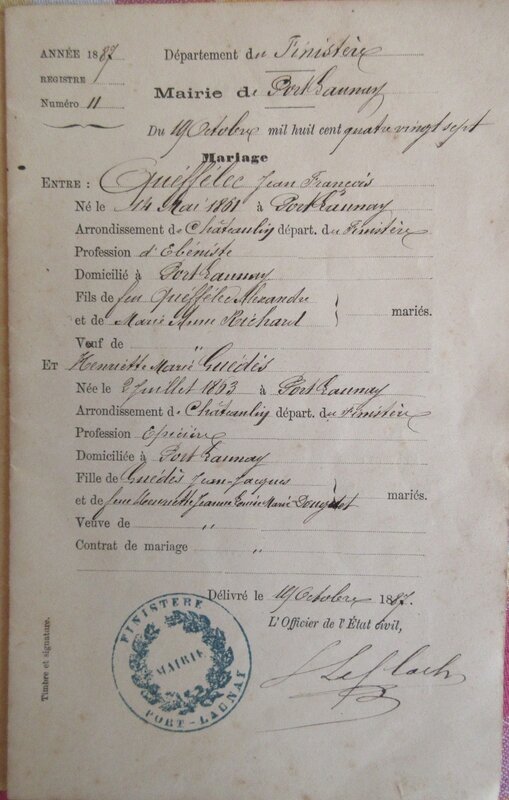 ANNÉE 1887 Département du Finistère
REGISTRE 1
Mairie de Port Launay
Numéro 11
Du 19 Octobre mil huit cent quatre vingt sept
Mariage
ENTRE : Quéffélec Jean François
Né le 14 Mai 1861 à Port Launay
Arrondissement de Châteaulin départ. du Finistère
Profession d'Ebéniste
Domicilié à Port Launay
Fils de feu Quéffélec Alexandre
et de Marie Anne Richard } mariés.
Veuf de "
ET Henriette Marie Guédès
Née le 2 Juillet 1863 à Port Launay
Arrondissement de Châteaulin départ. du Finistère
Profession Epicière
Domiciliée à Port Launay
Fille de Guédès Jean-Jacques
et de feue Henriette Jeanne Marie } mariés.
Veuve de "
Contrat de mariage "
Délivré le 19 Octobre 1887.
L'Officier de l'État civil,
Timbre et signature.
FINISTERE
MAIRIE
PORT-LAUNAY